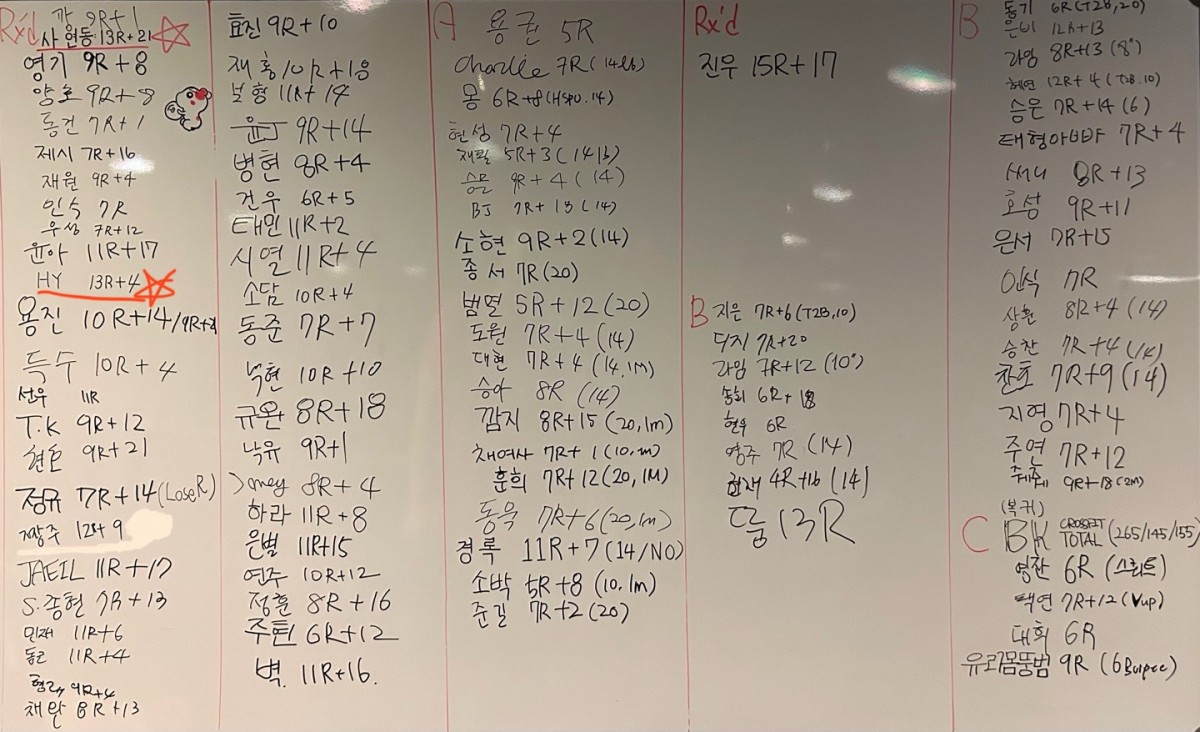 Rx'd
까 9R+1
사연동 13R+21
영기 9R+8
양호 9R+8
동건 7R+1
제시 7R+16
재원 9R+4
인숙 7R
우성 7R+12
윤아 11R+17
HY 13R+4
용진 10R+14/9R+
득수 10R+4
선우 11R
T.K 9R+12
현호 9R+21
정규 7R+14(LoseR)
짜장주 12R+9
JAEIL 11R+17
S.종현 7R+13
민재 11R+6
동근 11R+4
형래 9R+4
채완 8R+13
효진 9R+10
재홍 10R+18
보형 11R+14
윤J 9R+14
병현 8R+4
건우 6R+5
태민 11R+2
시열 11R+4
소담 10R+4
동준 7R+7
덕현 10R+10
규완 8R+18
낙유 9R+1
8R+4
하라 11R+8
은별 11R+15
연주 10R+12
정훈 8R+16
주현 6R+12
벽. 11R+16.
A
용권 5R
Charlie 7R(14lb)
몽 6R+8(HSPU.14)
현성 7R+4
재필 5R+3(14lb)
승문 9R+4(14)
BJ 7R+13(14)
소현 9R+2(14)
종서 7R(20)
범열 5R+12(20)
도원 7R+4(14)
대현 7R+4(14.1M)
승아 8R(14)
깜지 8R+15(20,1m)
채여사 7R+1(10.m)
훈희 7R+12(20,1M)
동욱 7R+6(20,1m)
경록 11R+7(14/NO)
소박 5R+8(10.1m)
준길 7R+2(20)
Rx'd
진우 15R+17
B
지은 7R+6(T2B,10)
둬지 7R+20
라임 7R+12(10")
송희 6R+18
현우 6R
영주 7R(14)
현재 4R+16(14)
둥 13R
B
동기 6R(T2B,20)
은비 12R+13
라임 8R+13(8")
혜연 12R+4(T2B.10)
승은 7R+14(6)
태형아빠 7R+4
써니 8R+13
효성 9R+11
은서 7R+15
인식 7R
상훈 8R+4(14)
승찬 7R+4(14)
찬호 7R+9(14)
지영 7R+4
주연 7R+12
쥬쥬 9R+18(2M)
(복귀)
C
BK CROSSFIT TOTAL (265/145/155)
영잔 6R(스크리트)
택연 7R+12(Vup)
대희 6R
유로7몸뚱범 9R(6Burpee)